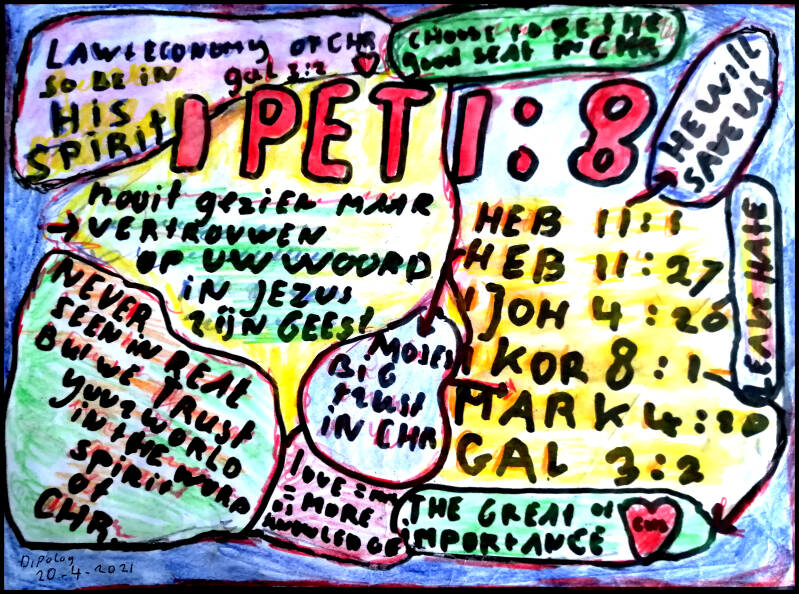 LAW + ECONOMY OF CHR
SO BE IN gal 3:2
HIS
SPIRIT
CHOOSE TO BE THE
good SEAT IN CHR
HE WILL
SAVE US
I PET 1:8
nooit gezien MAAR
→ VERTROUWEN
OP UW WOORD
IN JEZUS
ZIJN GEEST
HEB 11:1
HEB 11:27
1 JOH 4:20
1 KOR 8:1
MARK 4:20
GAL 3:2
LEAVE HATE
NEVER
SEEN IN REAL
BUT WE TRUST
YOUR WORLD
IN THE WORD
SPIRIT
OF
CHR
MOSES
BIG
TRUST
IN CHR
LOVE =
= MORE
KNOWLEDGE
THE GREAT OF
IMPORTANCE
Dipolog
20-4-2021